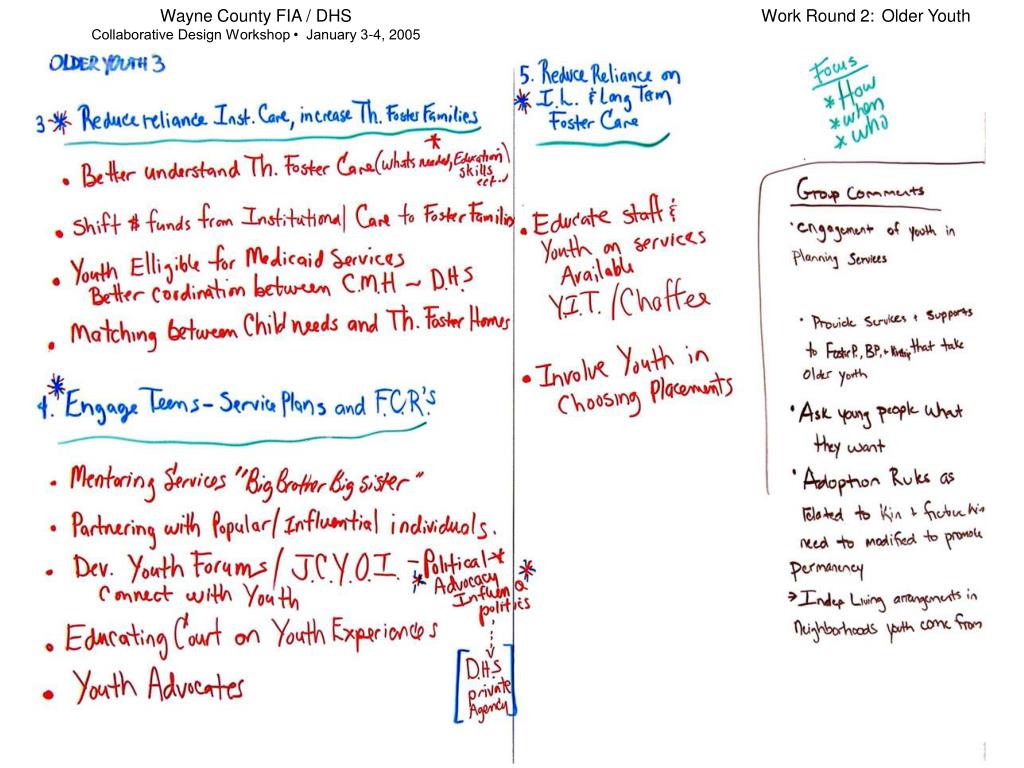 Wayne County FIA / DHS
Collaborative Design Workshop • January 3-4, 2005
Work Round 2: Older Youth
OLDER YOUTH 3
3-* Reduce reliance Inst. Care, increase Th. Foster Families
*
• Better understand Th. Foster Care (whats needed, Education)
skills
ect..)
• Shift $ funds from Institutional Care to Foster Families
• Youth Elligible for Medicaid Services
Better Cordination between C.M.H ~ D.H.S
• Matching between Child needs and Th. Foster Homes
*
4. Engage Teens - Service Plans and F.C.R's
• Mentoring Services "Big Brother Big Sister"
• Partnering with Popular/Influential individuals.
• Dev. Youth Forums / J.C.Y.O.I. - Political *
Connect with Youth
* Advocacy *
Influence
politics
• Educating Court on Youth Experiences
• Youth Advocates
[D.H.S
private
Agency]
5. Reduce Reliance on
* I.L. & Long Term
Foster Care
• Educate staff &
Youth on services
Available
Y.I.T. / Chaffee
• Involve Youth in
Choosing Placements
Focus
* How
* when
* who
Group Comments
• engagement of youth in
Planning Services
• Provide Services + Supports
to Foster P., BP, + Kinship that take
Older youth
• Ask young people what
they want
• Adoption Rules as
related to Kin + fictive kin
need to modified to promote
permanency
→ Indep Living arrangements in
Neighborhoods youth come from